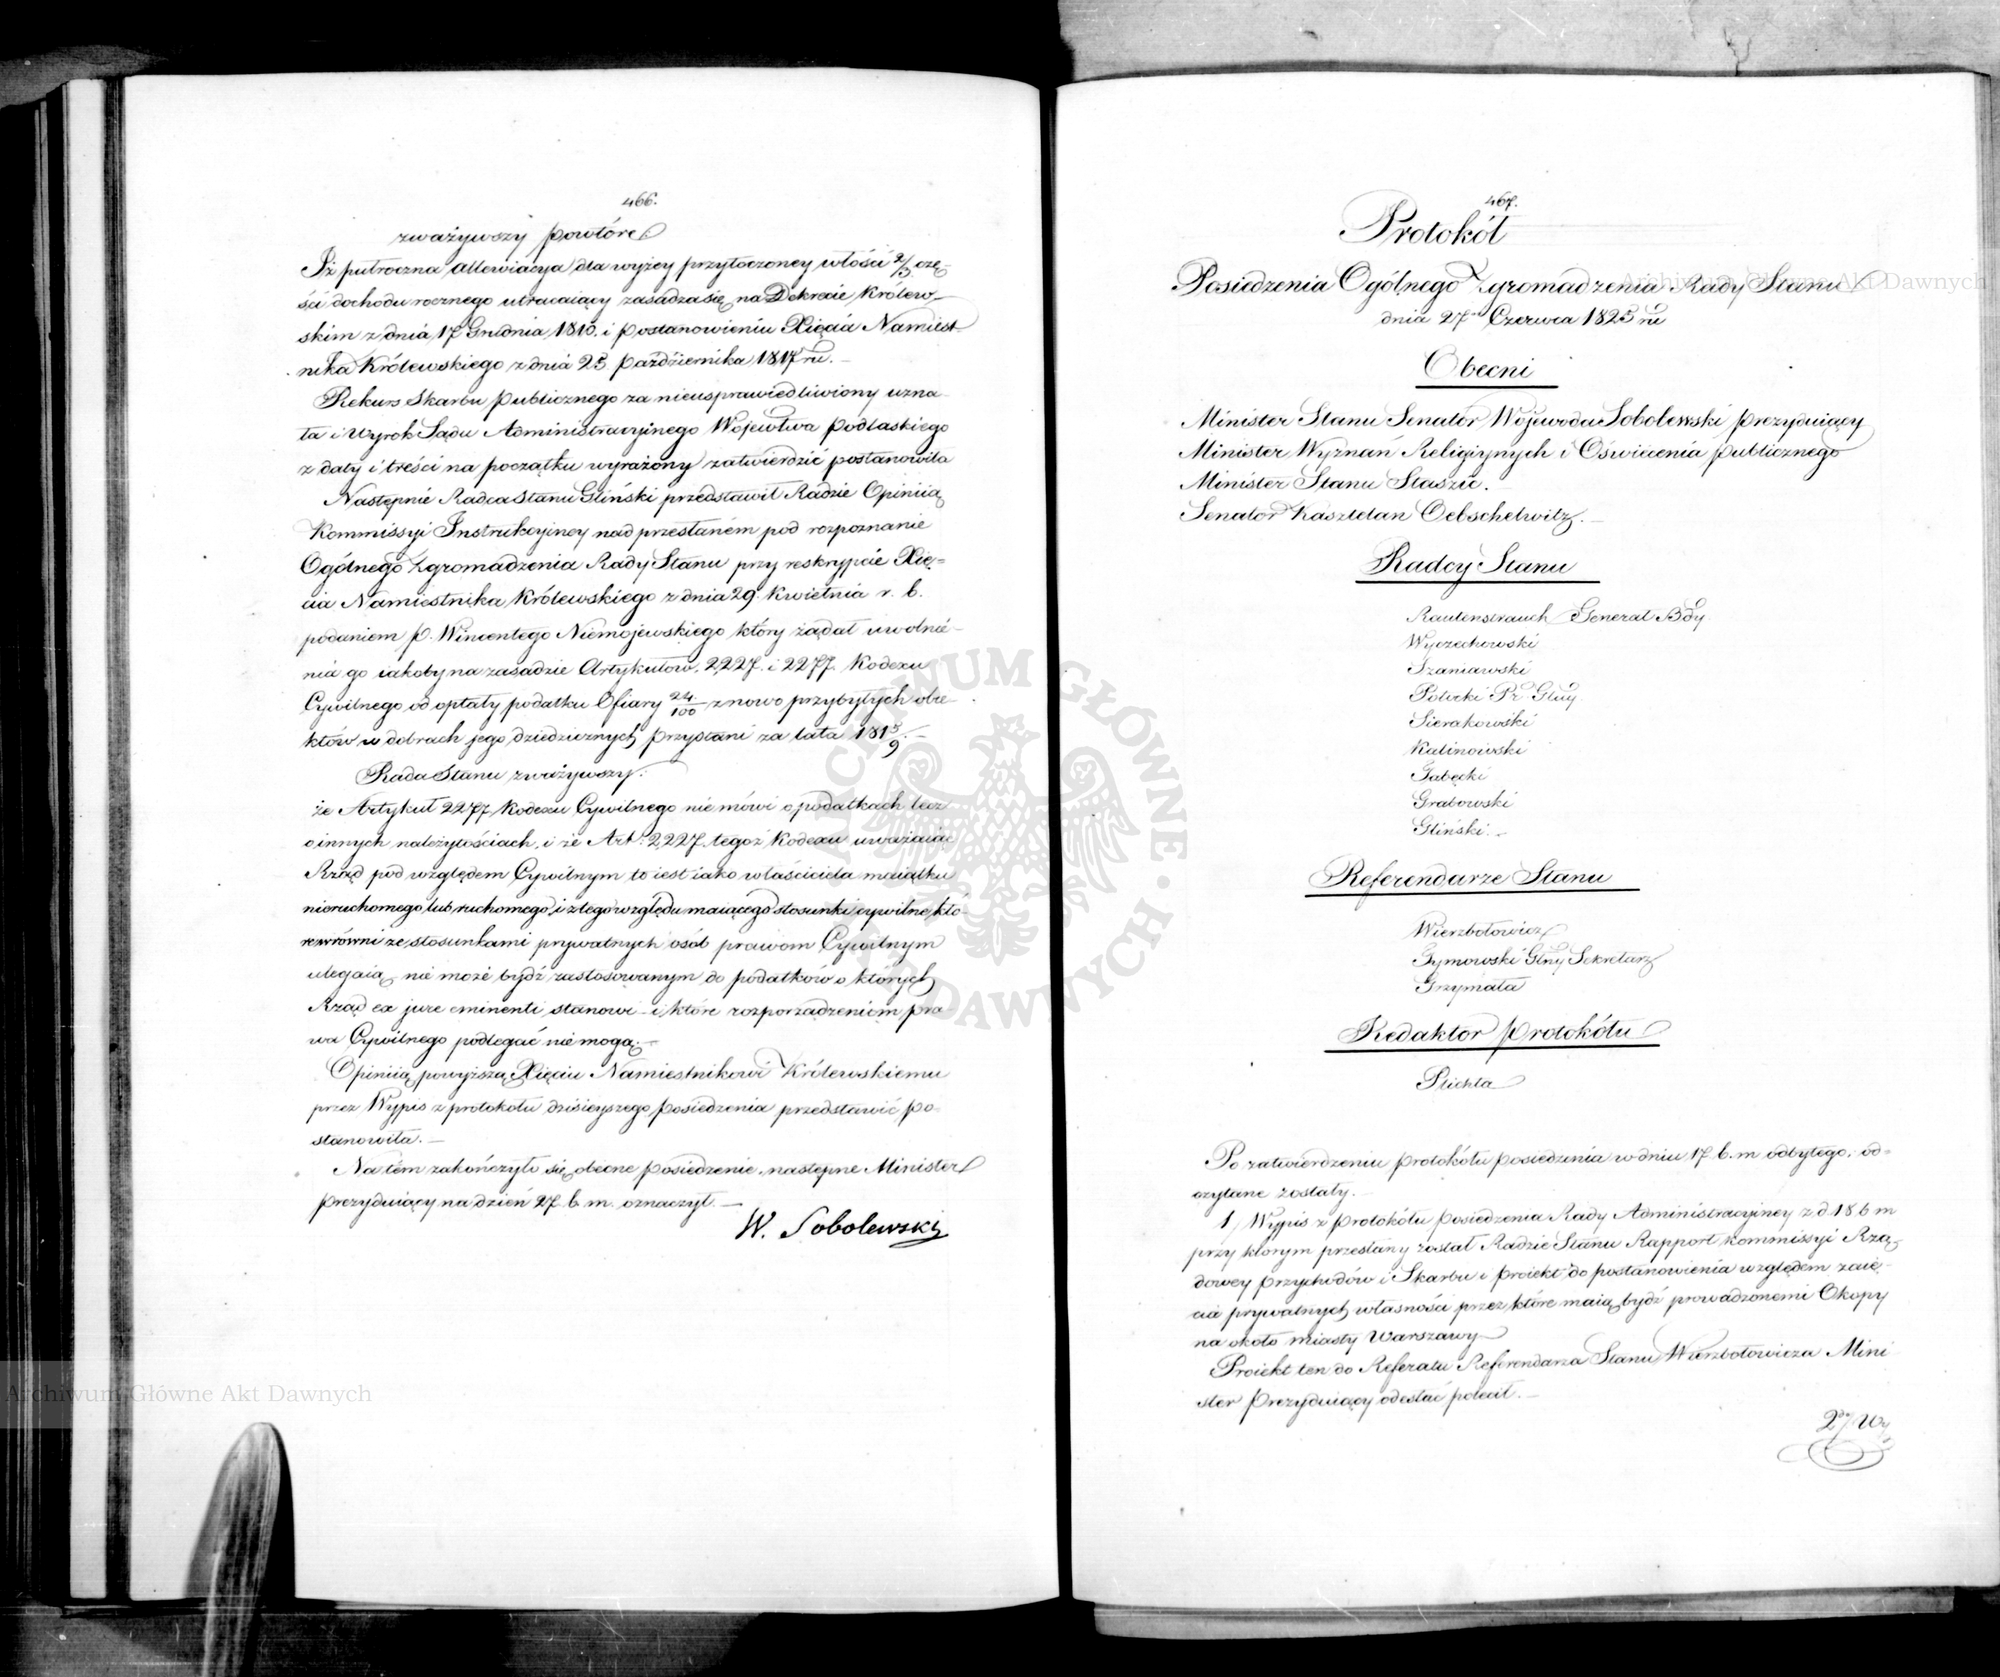 466.
zważywszy powtóre
Iż pułroczna allewiacya dla wyżey przytoczoney włości 2/3 czę-
ści dochodu rocznego utracaiący zasadza się na Dekrecie Królew-
skim z dnia 17 Grudnia 1810. i postanowieniu Xięcia Namiest-
nika Królewskiego z dnia 25 Października 1817 ru. —
Rekurs Skarbu publicznego za nieusprawiedliwiony uzna-
ła i Wyrok Sądu Administracyinego Wojewtwa Podlaskiego
z daty i treści na początku wyrażony zatwierdzić postanowiła
Następnie Radca Stanu Gliński przedstawił Radzie Opiniią
Kommissyi Instrukcyiney nad przesłaném pod rozpoznanie
Ogólnego Zgromadzenia Rady Stanu przy reskrypcie Xię=
cia Namiestnika Królewskiego z dnia 29. Kwietnia r. b.
podaniem P. Wincentego Niemojewskiego który żądał uwolnie-
nia go iakoby na zasadzie Artykułów. 2227. i 2277. Kodexu
Cywilnego od opłaty podatku Ofiary 24/100 z nowo przybyłych obie-
któw w dobrach jego dziedzicznych Przystani za lata 181
9. —
Rada Stanu zważywszy:
że Artykuł 2277 Kodexu Cywilnego nie mówi o podatkach lecz
o innych należytościach, i że Art. 2227. tegoż Kodexu uważaiąc
Rząd pod względem Cywilnym to iest iako właściciela maiątku
nieruchomego lub ruchomego i z tego względu maiącego stosunki cywilne któ-
re w równi ze stosunkami prywatnych osób prawom Cywilnym
ulegaią, nie może bydź zastosowanym do podatków o których
Rząd ex jure eminenti stanowi i które rozporządzeniom pra
wa Cywilnego podlegać nie mogą. —
Opiniią powyższą Xięciu Namiestnikowi Królewskiemu
przez Wypis z protokołu dzisieyszego posiedzenia przedstawić po-
stanowiła. —
Na tém zakończyło się obecne posiedzenie, następne Minister
prezyduiący na dzień 27. b. m. oznaczył. —
W. Sobolewski
467.
Protokół
Posiedzenia Ogólnego Zgromadzenia Rady Stanu
dnia 27 Czerwca 1825 ru
Obecni
Minister Stanu Senator Wojewoda Sobolewski prezyduiący
Minister Wyznań Religiynych i Oświecenia publicznego
Minister Stanu Staszic. —
Senator Kasztelan Oebschelwitz. —
Radcy Stanu
Rautenstrauch General Bdy
Wyczechowski
Szaniawski
Potocki Pr. Gluy.
Sierakowski
Kalinowski
Tabęcki
Grabowski
Gliński. —
Referendarze Stanu
Wierzbołowicz
Tymowski Glny Sekretarz
Grzymała
Redaktor protokółu
Plichta
Po zatwierdzeniu protokółu posiedzenia w dniu 17. b. m odbytego, od=
czytane zostały. —
1, Wypis z protokółu posiedzenia Rady Administracyiney z d. 18 b m
przy którym przesłany został Radzie Stanu Rapport Kommissyi Rzą-
dowey Przychodów i Skarbu i proiekt do postanowienia względem zaię-
cia prywatnych własności przez które maią bydź prowadzonemi Okopy
na około miasty Warszawy
Proiekt ten do Referatu Referendarza Stanu Wierzbołowicza Mini
ster prezyduiący odesłać polecił. —
2do/ Wy
Archiwum Główne Akt Dawnych
Archiwum Główne Akt Dawnych
ARCHIWUM GŁÓWNE AKT DAWNYCH